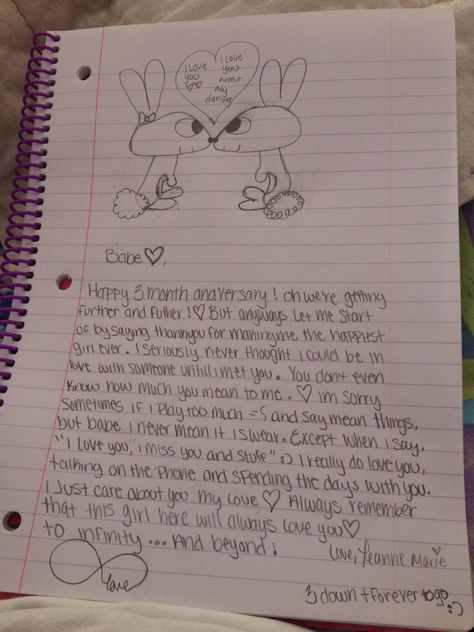 I Love
you
I Love
you
most
my
darling
Babe ♡,
Happy 3 month anaversary! oh we're getting
further and futher!♡ But anyways Let me start
of by saying thankyou for making me the happiest
girl ever. I seriously never thought I could be in
love with someone until I met you. You don't even
know how much you mean to me. ♡ im sorry
sometimes if I play too much =S and say mean things,
but babe I never mean it I swear. Except when I say,
"I Love you, I miss you and stuff" :) I really do love you,
talking on the phone and spending the days with you.
I Just care about you my Love ♡ Always remember
that this girl here will always Love you♡
to infinity... And beyond!
Love, Yeanne Marie
Love
3 down + forever to go
:)